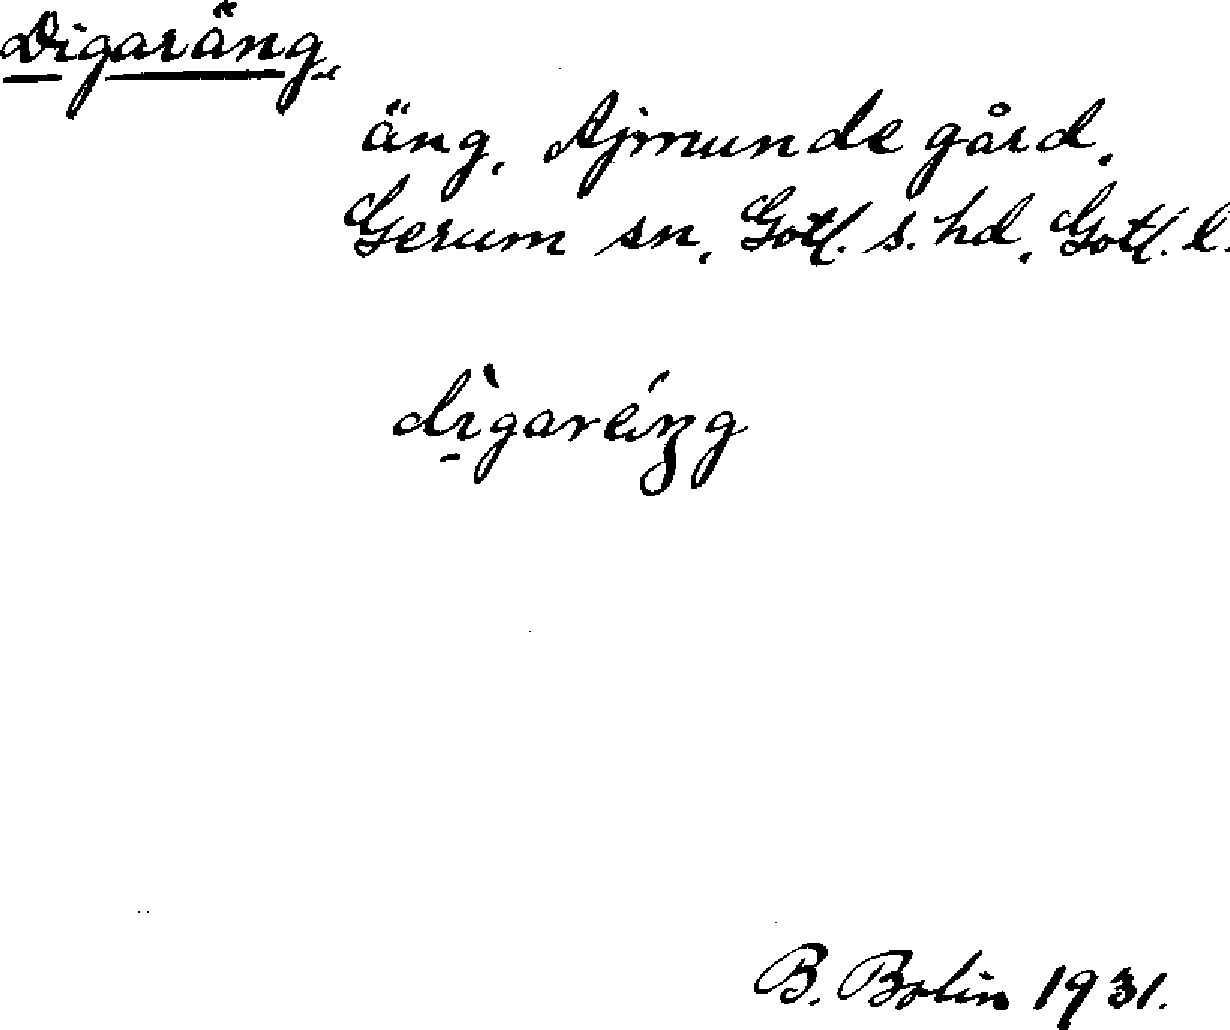 Digaräng,
äng, Ajmunde gård,
Gerum sn, Gotl. s. hd, Gotl. l.
dìgaréŋg
B. Bolin 1931.